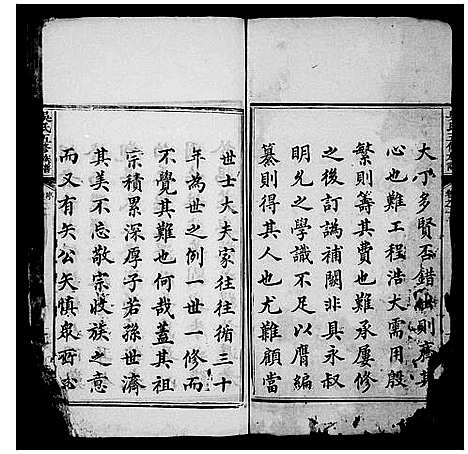 大丁多賢否錯則齊其
心也難工程浩大需用殷
繁則籌其費也難承屢修
之後訂譌補闕非具永叔
明允之學識不足以膺編
纂則得其人也尤難顧當
世士大夫家往往循三十
年為世之例一世一修而
不覺其難也何哉蓋其祖
宗積累深厚子若孫世濟
其美不忘敬宗收族之意
而又有矢公矢慎眾
吳氏五修族譜